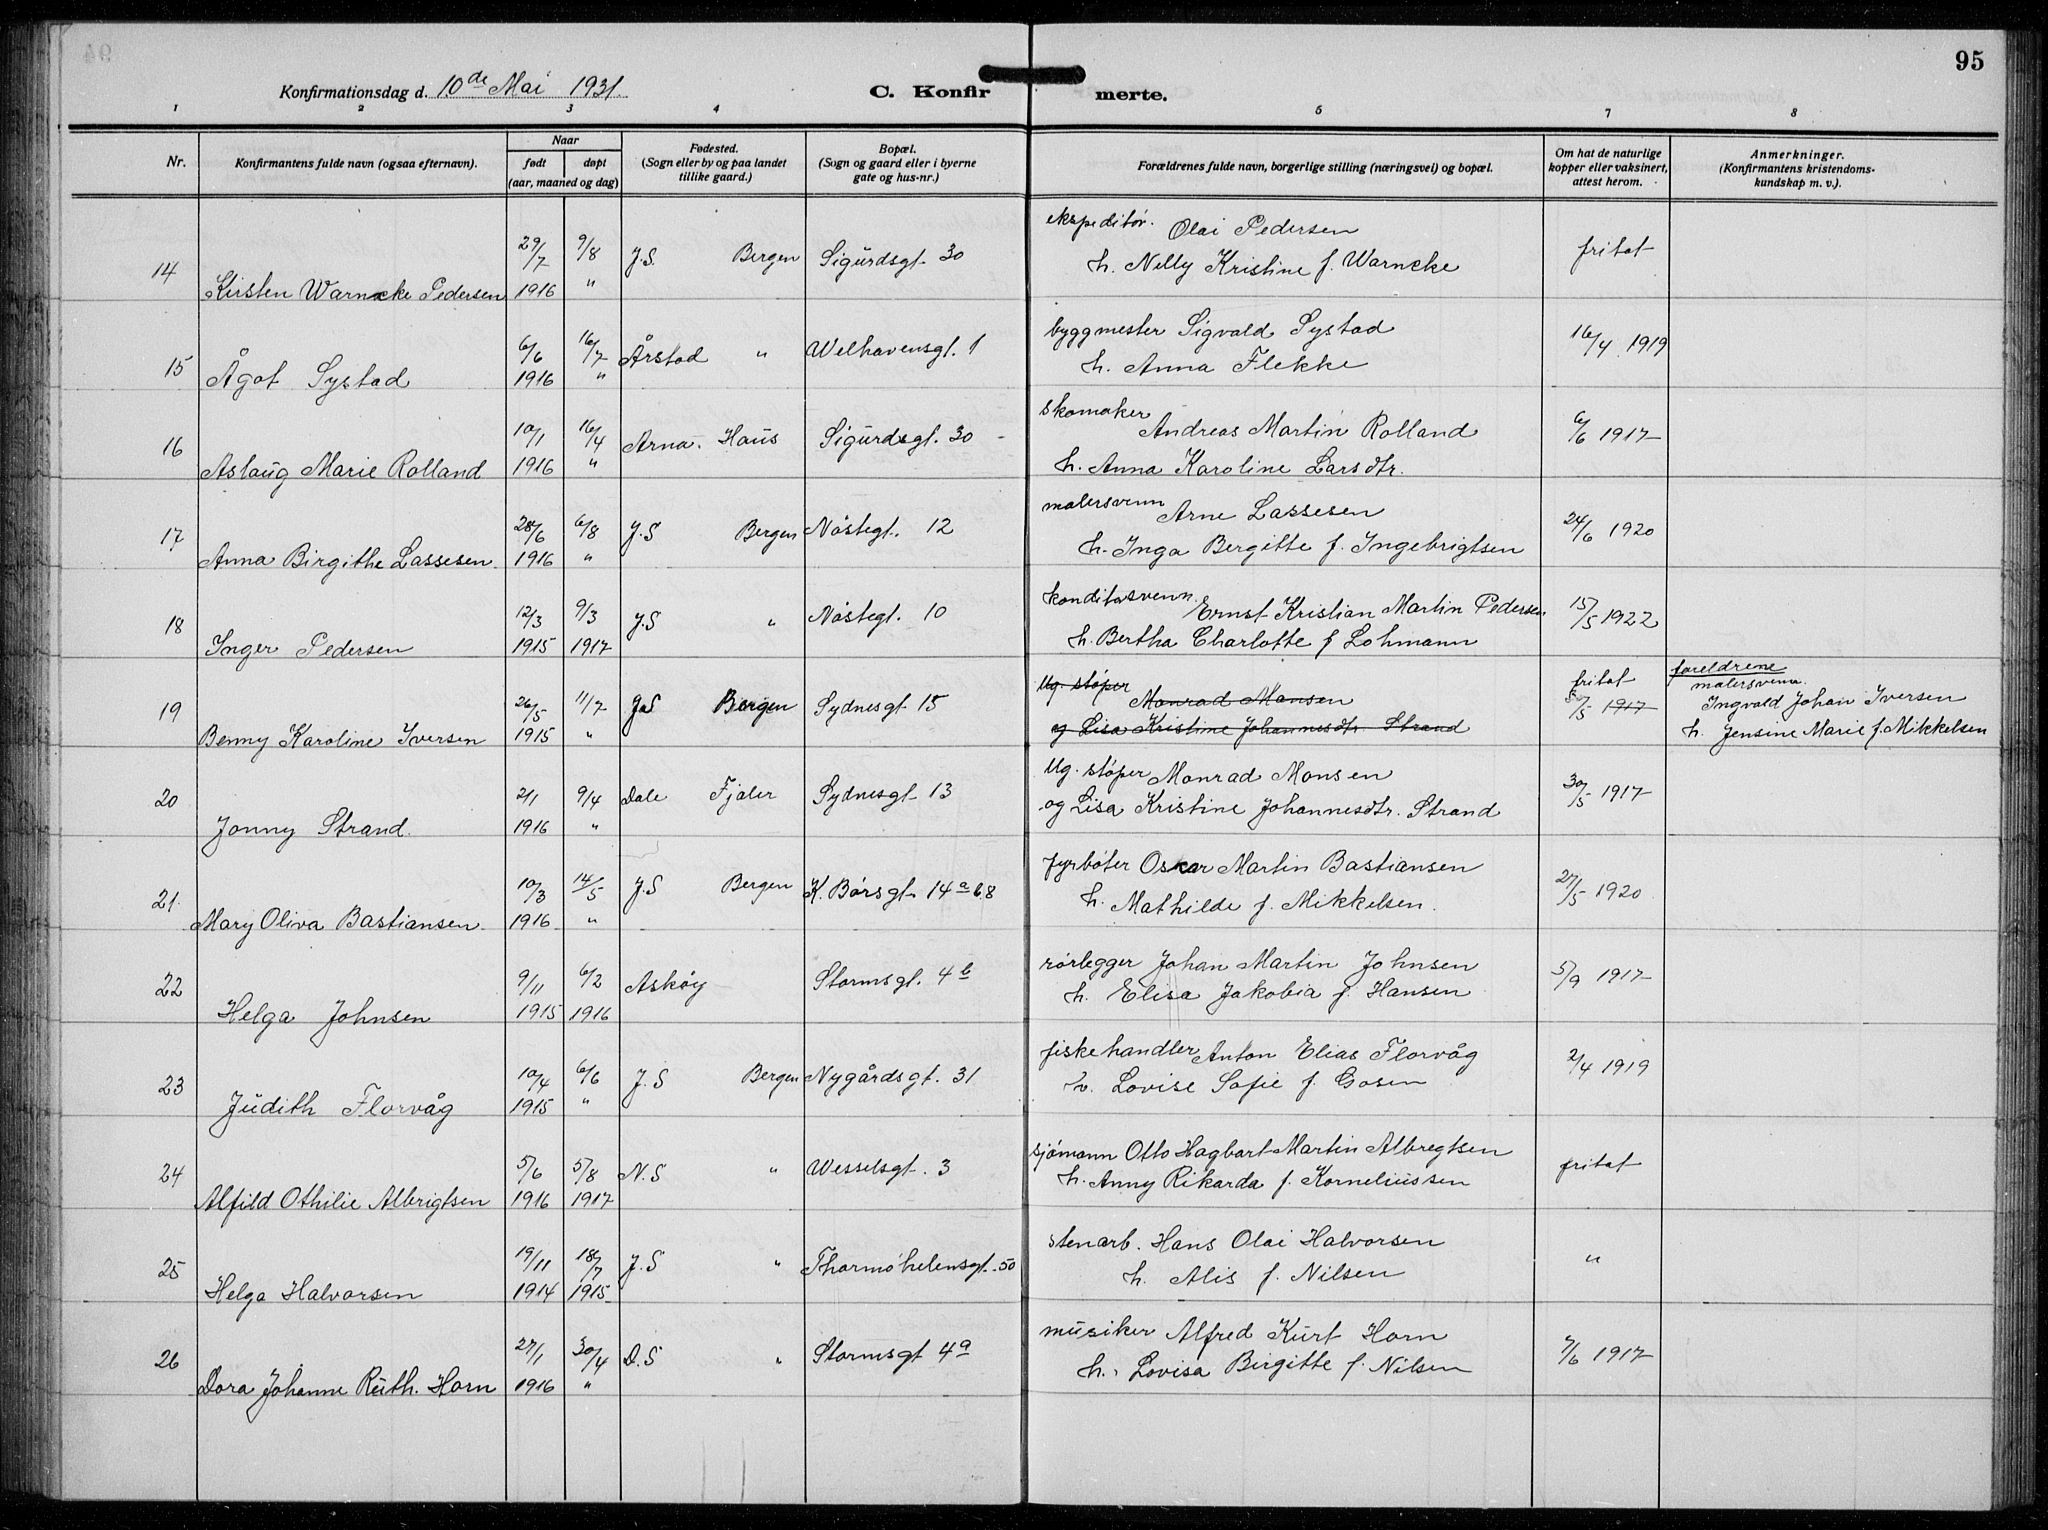 95
Konfirmationsdag d. 10de Mai 1931.
C. Konfir merte.
1 2 3 4 5 6 7 8
Nr.
Konfirmantens fulde navn (ogsaa efternavn).
Naar
født døpt
(aar, maaned og dag)
Fødested.
(Sogn eller by og paa landet
tillike gaard.)
Bopæl.
(Sogn og gaard eller i byerne
gate og hus-nr.)
Forældrenes fulde navn, borgerlige stilling (næringsvei) og bopæl.
Om hat de naturlige
kopper eller vaksinert,
attest herom.
Anmerkninger.
(Konfirmantens kristendoms-
kundskap m. v.).
ekspeditør. Olai Pedersen
14 29/7 9/8 J.S. Bergen Sigurdsgt. 30 h. Nelly Kristine f. Warncke fritat
Kirsten Warncke Pedersen 1916 "
byggmester Sigvald Systad
15 6/6 16/7 Årstad " Welhavensgt. 1 h. Anna Flekke 16/4 1919
Ågot Systad 1916 "
skomaker Andreas Martin Rolland
16 10/1 16/4 Arna. Haus Sigurdsgt. 30 6/6 1917
Aslaug Marie Rolland 1916 " h. Anna Karoline Larsdtr.
malersvenn Arne Lassesen
17 28/6 6/8 J.S Bergen Nøstegt. 12 24/6 1920
Anna Birgithe Lassesen 1916 " h. Inga Bergitte f. Ingebrigtsen
konditorsvenn. Ernst Kristian Martin Pedersen
18 12/3 9/3 J.S " Nøstegt. 10 15/5 1922
Inger Pedersen 1915 1917 h. Bertha Charlotte f Lohmann
Ug. støper Monrad Monsen fritat foreldrene
19 26/5 11/7 J.S Bergen Sydnesgt 15 30/5 1917 malersvenn Ingvald Johan Iversen
Benny Karoline Iversen 1915 " og Lisa Kristine Johannesdtr. Strand h. Jensine Marie f. Mikkelsen
20 2/1 9/4 Dale Fjaler Sydnesgt. 13 Ug. støper Monrad Monsen 30/5 1917
Jonny Strand. 1916 " og Lisa Kristine Johannesdtr. Strand
21. 10/3 14/5 J.S Bergen K. Børsgt. 14 a fyrbøter Oskar Martin Bastiansen 27/5 1920
Mary Oliva Bastiansen. 1916 " h. Mathilde f. Mikkelsen.
22 9/11 6/2 Askøy Stormsgt. 4 b rørlegger Johan Martin Johnsen 5/9 1917
Helga Johnsen 1915 1916 h. Elisa Jakobia f. Hansen
23 10/4 6/6 J.S Bergen Nygårdsgt. 31 fiskehandler Anton Elias Florvåg 2/4 1919
Judith Florvåg 1915 " h. Lovise Sofie f. Gosen
24 5/6 5/8 N.S " Wesselsgt. 3 sjømann Otto Hagbart Martin Albregtsen fritat
Alfild Othilie Albrigtsen 1916 1917 h. Anny Rikarda f. Korneliussen
25 19/11 18/7 J.S " Thormøhlensgt. 50 stenarb. Hans Olai Halvorsen "
Helga Halvorsen 1914 1915 h. Alis f. Nilsen
26 27/1 30/4 D.S " Stormsgt 4a musiker Alfred Kurt Horn 7/6 1917
Dora Johanne Ruth. Horn 1916 " h. Lovisa Birgitte f. Nilsen